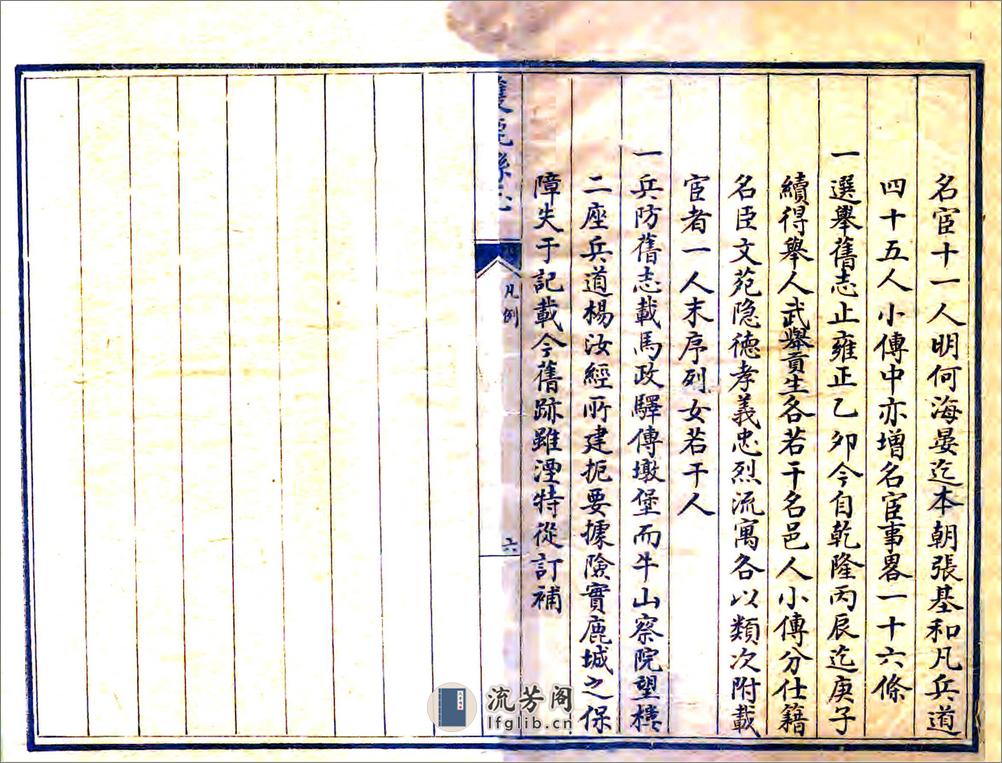 名宦十一人明何海晏迄本朝張基和凡兵道
四十五人小傳中亦增名宦事畧一十六條
一選舉舊志止雍正乙夘今自乾隆丙辰迄庚子
續得舉人武舉貢生各若干名邑人小傳分仕籍
名臣文苑隐德孝義忠烈流寓各以類次附載
宦者一人末序列女若干人
一兵防舊志載馬政驛傳墩堡而牛山察院望樓
二座兵道楊汝經所建扼要據險實鹿城之保
障失于記載今舊跡雖湮特從訂補
鹿縣志
凡例
六
流芳阁
lfglib.cn